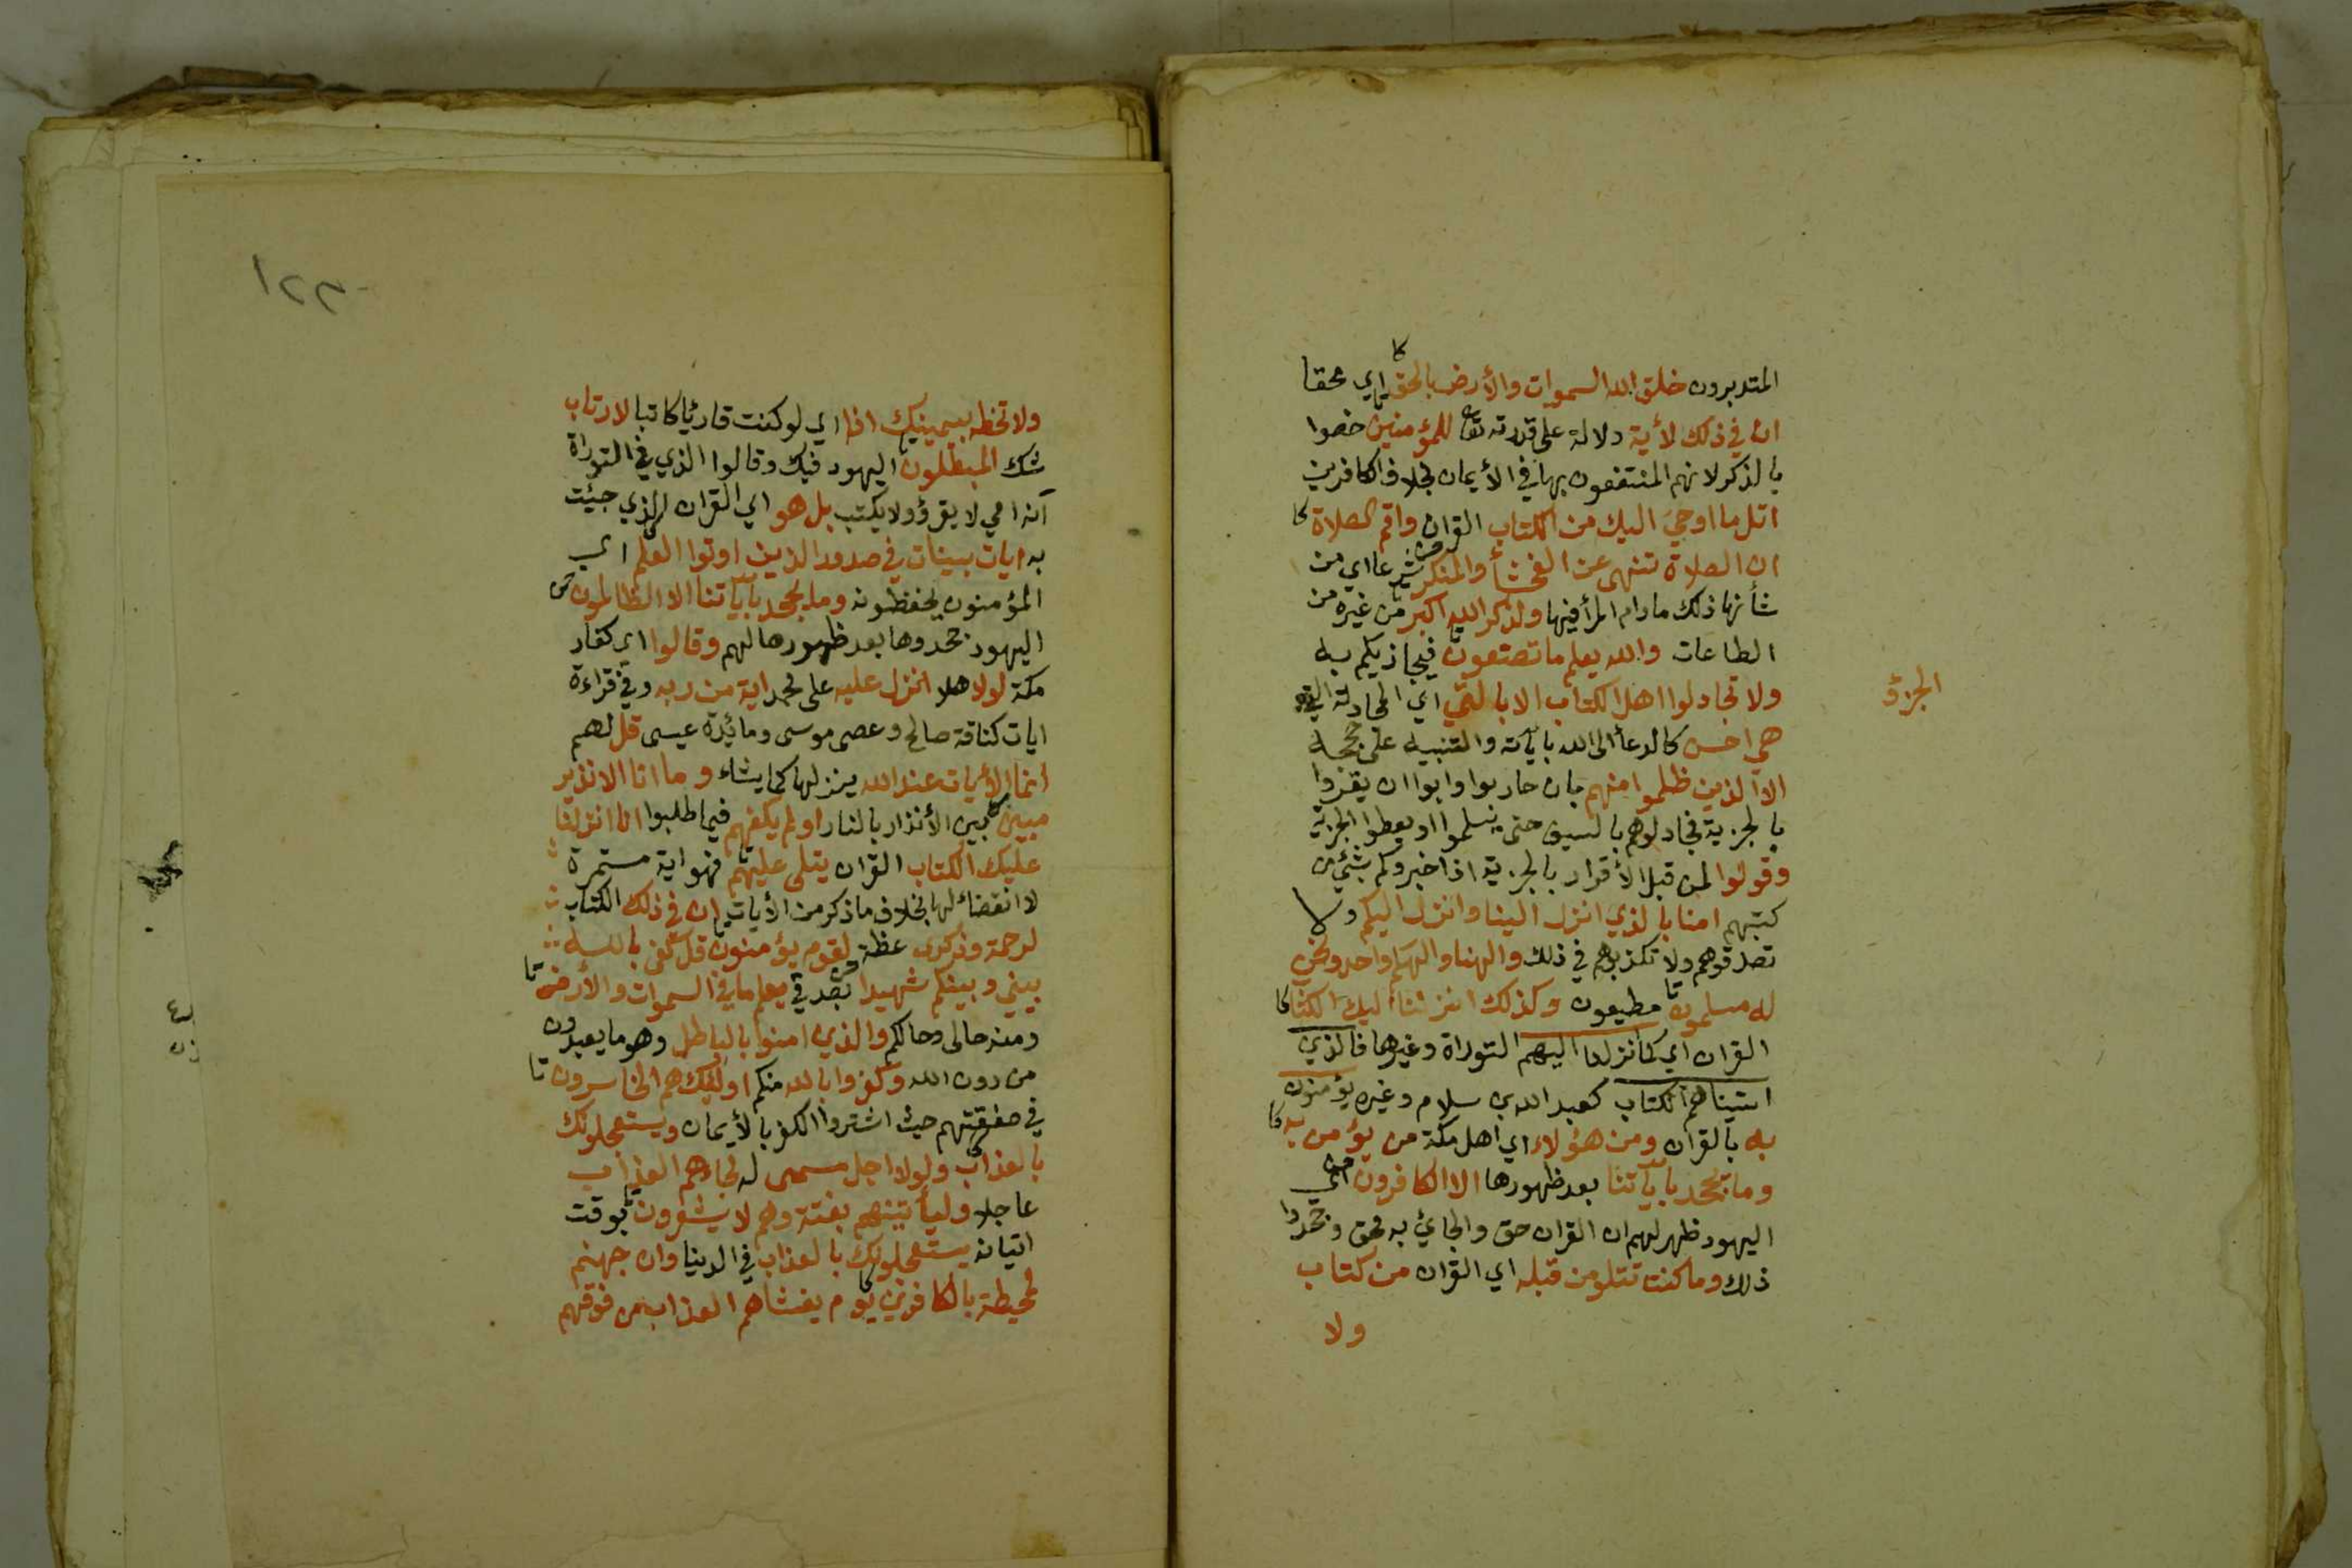 المتدبرون خلق الله السموات والأرض بالحق اي محقا
ان في ذلك لأية دلالة على قدرته تعا للمؤمنين خصوا
بالذكر لانهم المنتفعون بها في الأيمان بخلاف الكافرين
اتل ما اوحي اليك من الكتاب القران واقم الصلاة
ان الصلاة تنهى عن الفحشأ والمنكر شرعا اي من
شأنها ذلك مادام المرأ فيها ولذكر الله اكبر من غيره من
الطاعات والله يعلم ما تصنعون فيجازيكم به
الجزؤ
ولا تجادلوا اهل الكتاب الا بالتي اي المجادلة التي
هي احسن كالدعأ الى الله بأياته والتنبيه على حججه
الا الذين ظلموا منهم بان حاربوا وابوا ان يقروا
بالجزية فجادلوهم بالسيف حتى يسلموا او يعطوا الجزية
وقولوا لمن قبل الأقرار بالجزية اذا اخبروكم بشئ من
كتبهم امنا بالذي انزل الينا وانزل اليكم ولا
تصدقوهم ولا تكذبوهم في ذلك والهنا والهكم واحد ونحن
له مسلمون مطيعون وكذلك انزلنا اليك الكتاب
القران اي كما انزلنا اليهم التوراة وغيرها فالذي
اتيناهم الكتاب كعبد الله بن سلام وغيره يؤمنون
به بالقران ومن هؤلاء اي اهل مكة من يؤمن به
وما يجحد بأياتنا بعد ظهورها الا الكافرون اي
اليهود ظهر لهم ان القران حق والجائ به محق وجحدوا
ذلك وما كنت تتلو من قبله اي القران من كتاب
ولا
١٢٣٠
ولا تخطه بيمينك اذا اي لو كنت قارئا كاتبا لارتاب
شك المبطلون اليهود فيك وقالوا الذي في التوراة
انه امي لا يقرؤ ولا يكتب بل هو اي القران الذي جيئت
به ايات بينات في صدور الذين اوتوا العلم اي
المؤمنون يحفظونه وما يجحد بأياتنا الا الظالمون
اليهود جحدوها بعد ظهورها لهم وقالوا اي كفار
مكة لولا هلا انزل عليه على محمد اية من ربه وفي قراءة
ايات كناقة صالح وعصى موسى ومائيدة عيسى قل لهم
انما الأيات عند الله ينزلها كما يشاء وما انا الا نذير
مبين مبين الأنذار بالنار اولم يكفهم فيما طلبوا انا انزلنا
عليك الكتاب القران يتلى عليهم فهو اية مستمرة
لا انقضاء لها بخلاف ما ذكر من الأيات ان في ذلك الكتاب
لرحمة وذكرى عظة لقوم يؤمنون قل كفى بالله
بيني وبينكم شهيدا بصدقي يعلم ما في السموات والأرض
ومنه حالى وحالكم والذي امنوا بالباطل وهو ما يعبدون
من دون الله وكفروا بالله منكم اولئك هم الخاسرون
في صفقتهم حيث اشتروا الكفر بالأيمان ويستعجلونك
بالعذاب ولولا اجل مسمى له لجاءهم العذاب
عاجلا وليأتينهم بغتة وهم لا يشعرون بوقت
اتيانه يستعجلونك بالعذاب في الدنيا وان جهنم
لمحيطة بالكافرين يوم يغشاهم العذاب من فوقهم